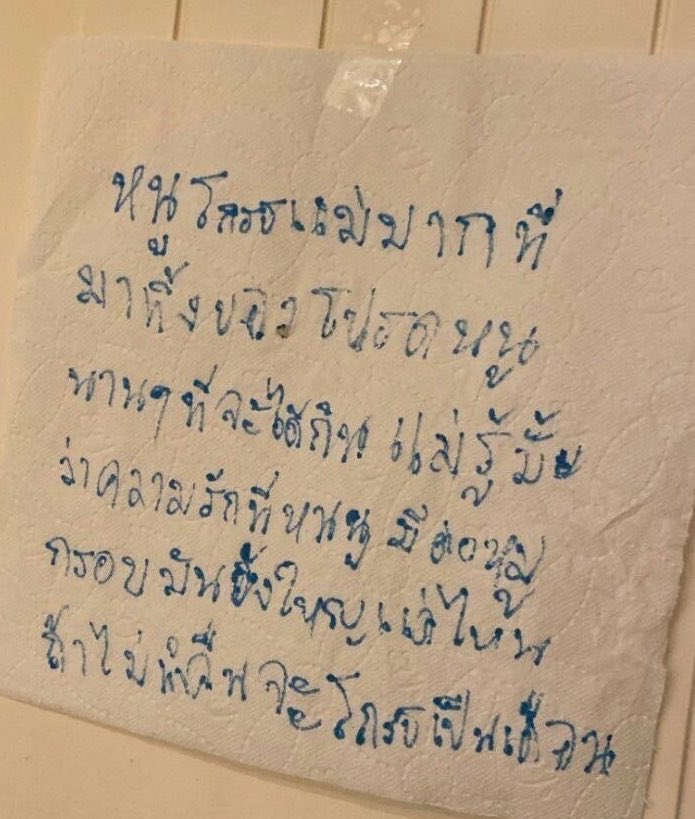 หนูโกรธแม่มากๆที่
มาทิ้งของโปรดหนู
นานๆที่จะได้กิน แม่รู้มั้ย
ว่าความรักที่หนูมีต่อหมู
กรอบมันยิ่งใหญ่แค่ไหน
ถ้าไม่นำคืนจะโกรธเป็นเดือน